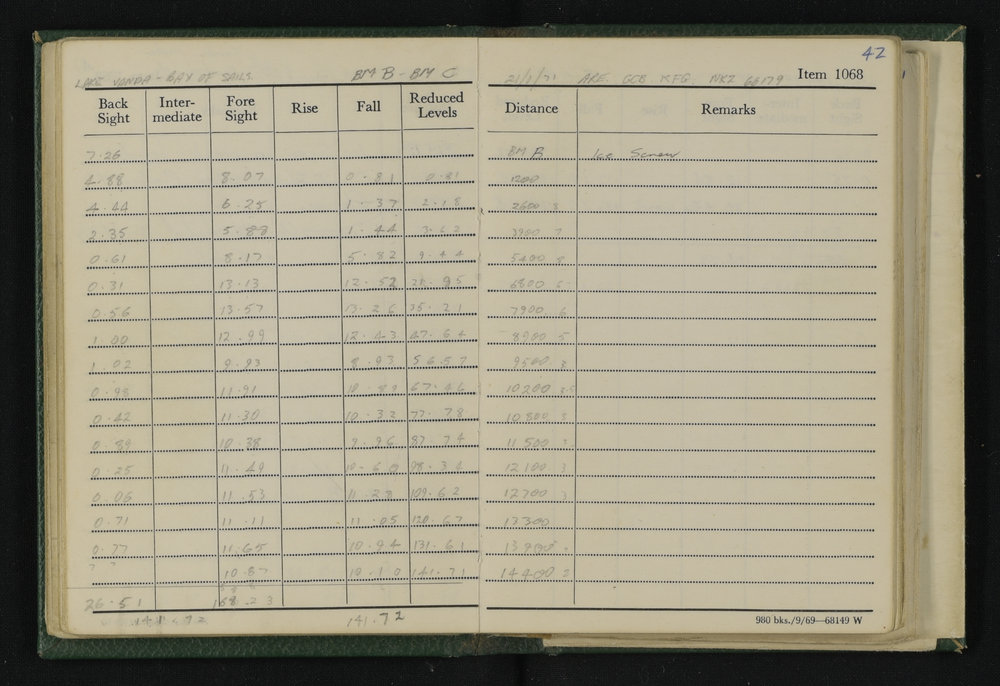 42
LAKE VANDA - BAY OF SAILS. BM B - BM C 21/1/71 ARF. GCB KFG NKZ 68179 Item 1068
Back Sight Inter-mediate Fore Sight Rise Fall Reduced Levels Distance Remarks
7.26 BM B Ice Screw
4.88 8.07 0.81 0.81 1200
4.44 6.25 1.37 2.18 2600
2.35 5.88 1.44 3.62 3900 7
0.61 8.17 5.82 9.44 5400 8
0.31 13.13 12.52 21.95 6800 6
0.56 13.57 13.26 35.21 7900 6
1.00 12.99 12.43 47.64 8900 5
1.02 9.93 8.93 56.57 9500 3
0.98 11.91 10.89 67.46 10200 3.5
0.42 11.30 10.32 77.78 10800 3
0.89 10.38 9.96 87.74 11500
0.25 11.49 10.60 98.34 12100 3
0.06 11.53 11.28 109.62 12700 3
0.71 11.11 11.05 120.67 13300
0.77 11.65 10.94 131.61 13900
10.87 10.10 141.71 14400 2
26.51 168.23
141.72 141.72
980 bks./9/69—68149 W